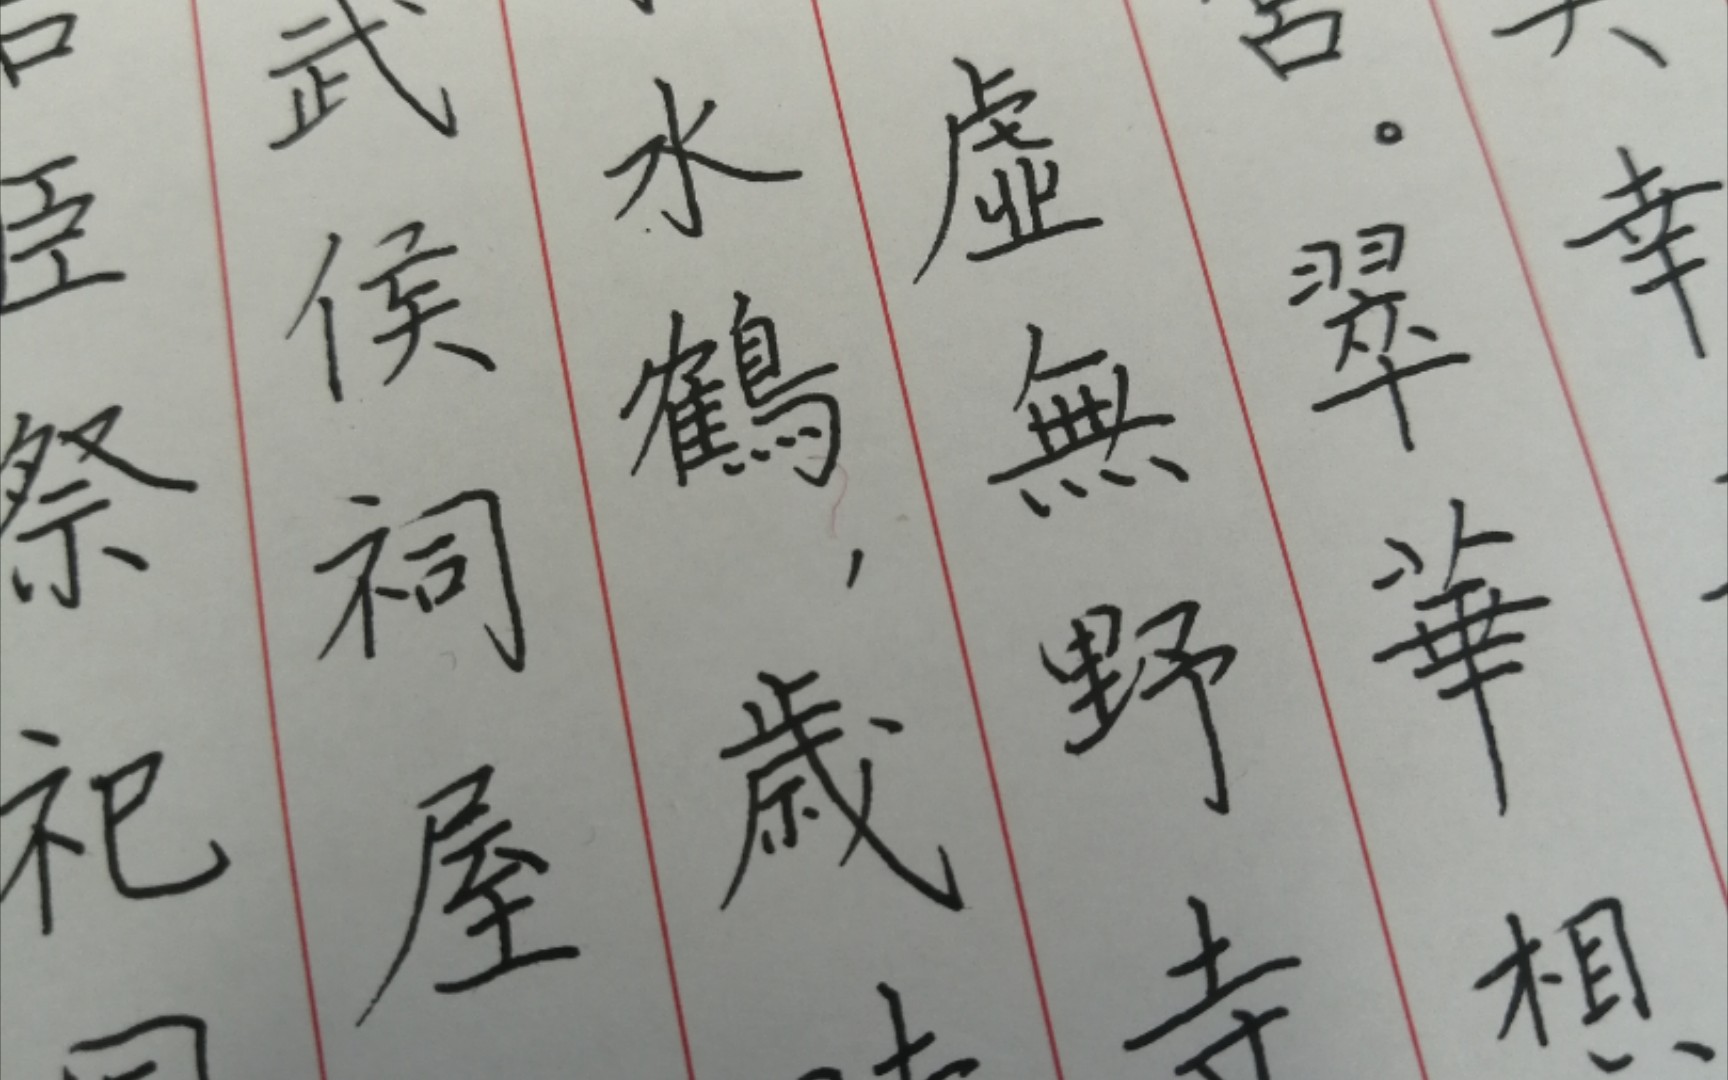 幸
宮。翠華想
虛無野寺
水鶴,歲
武侯祠屋
臣祭祀